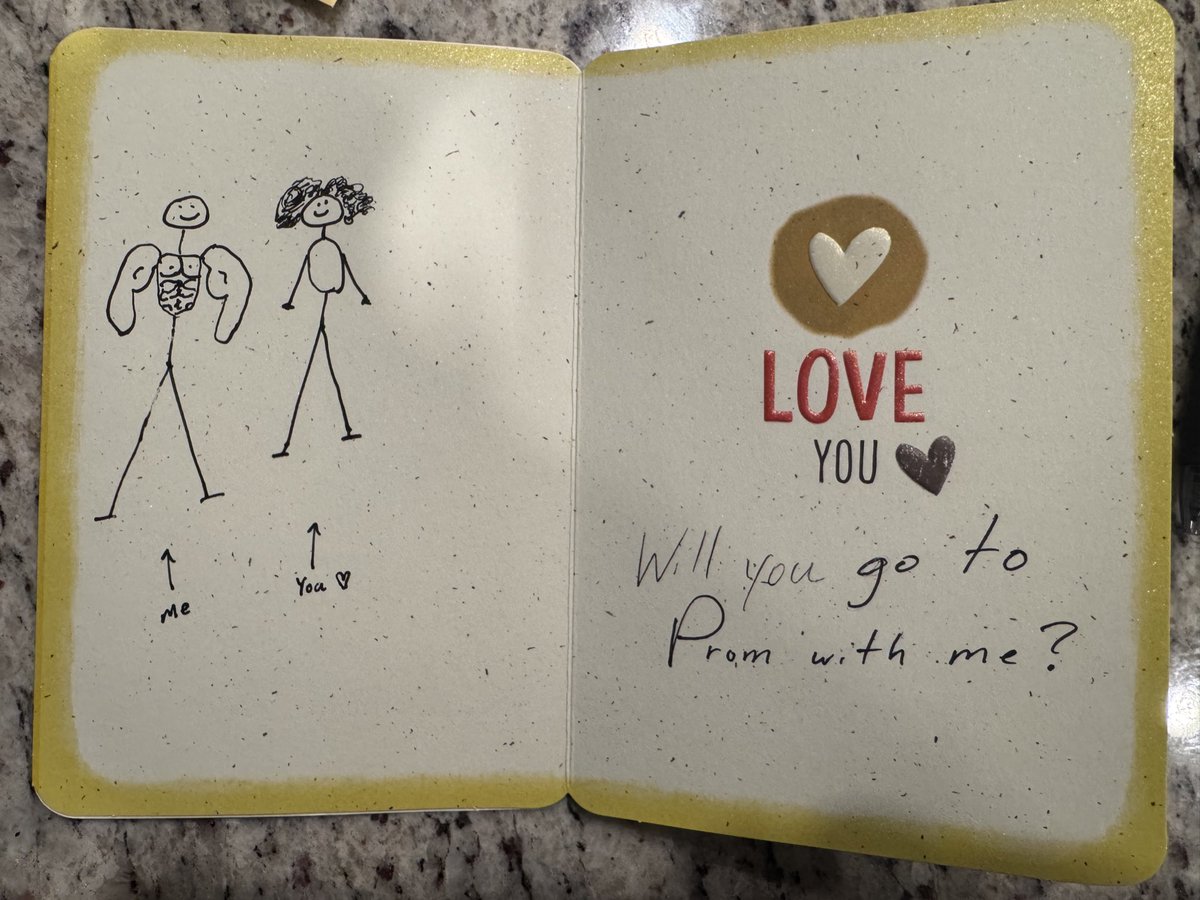 me
You ♡
LOVE
YOU
Will you go to
Prom with me?